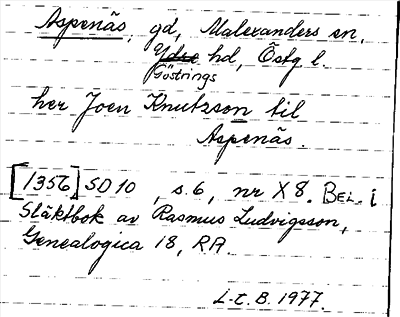 Aspenäs, gd, Malexanders sn,
Ydre hd, Östg l.
Göstrings
her Joen Knutzson til
Aspenäs.
[1356] SD 10, s. 6, nr X 8. Bel. i
Släktbok av Rasmus Ludvigsson,
Genealogica 18, RA.
L-t. B. 1977.